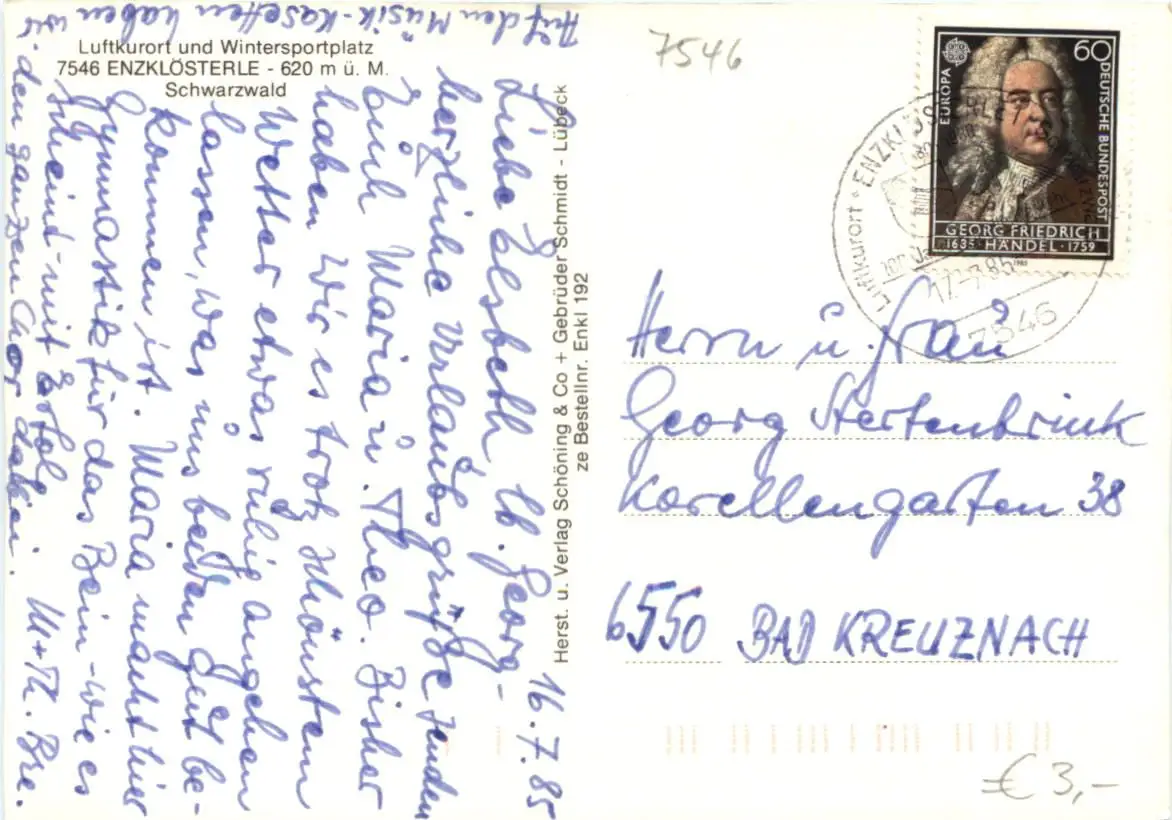 Luftkurort und Wintersportplatz
7546 ENZKLÖSTERLE - 620 m ü. M.
Schwarzwald
16.7.85
Liebe Elsbeth, lb. Georg -
herzliche Urlaubsgrüße senden
Euch Maria u. Theo. Bisher
haben wir es trotz schönstem
Wetter etwas ruhig angehen
lassen, was uns beiden gut be-
kommen ist. Maria macht hier
Gymnastik für das Bein - wie es
scheint - mit Erfolg. M + Th. Bre.
Auf den Musik-Kasetten haben wir
den ganzen Chor dabei.
Herst. u. Verlag Schöning & Co + Gebrüder Schmidt - Lübeck
ze Bestellnr. Enkl 192
7546
EUROPA
60
DEUTSCHE BUNDESPOST
GEORG FRIEDRICH
1685 HÄNDEL 1759
1985
Luftkurort * ENZKLÖSTERLE
17.-7.85
7546
Herrn u. Frau
Georg Stertenbrink
Korellengarten 38
6550 BAD KREUZNACH
€ 3,-